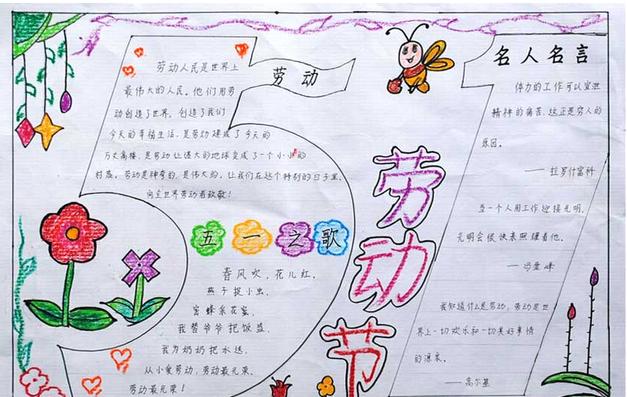 劳动
劳动人民是世界上
最伟大的人民。他们用劳
动创造了世界,创造了我们
今天的幸福生活,是劳动建成了今天的
万丈高楼,是劳动让偌大的地球变成了一个小小的
村庄。劳动是神奇的,是伟大的,让我们在这个特别的日子里,
向全世界劳动者致敬!
五一之歌
春风吹,花儿红,
燕子捉小虫,
蜜蜂采花蜜,
我帮爷爷把饭盛
我为奶奶把水送
从小爱劳动,劳动最光荣,
劳动最光荣!
劳动节
名人名言
体力的工作可以宽泄
精神的痛苦,这正是穷人的
原因。
——拉罗什富科
当一个人用工作迎接光明,
光明会很快来照耀着他。
——冯学峰
我知道什么是劳动,劳动是世
界上一切欢乐和一切美好事情
的源泉。
——高尔基